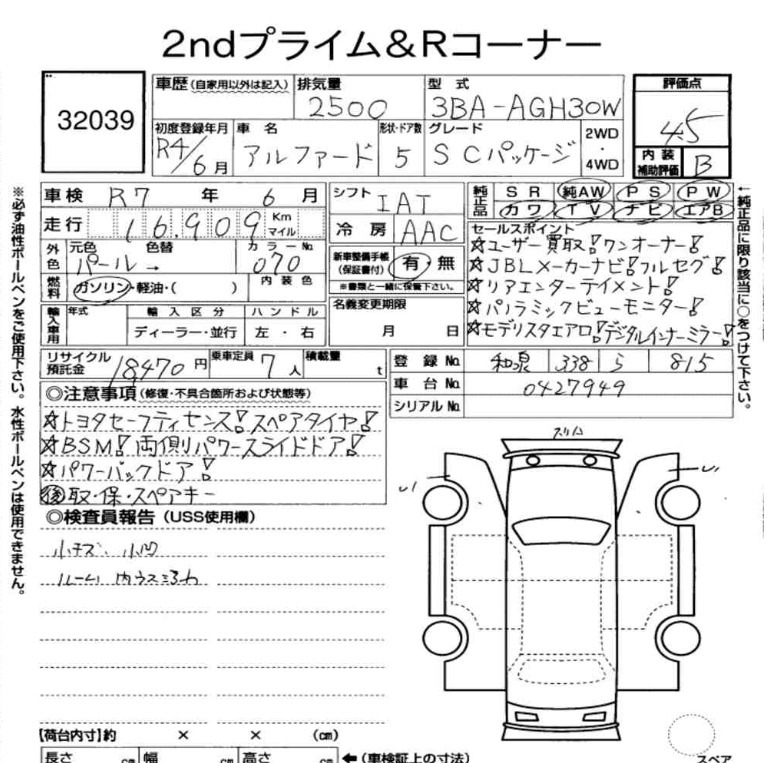 2ndプライム&Rコーナー
32039
車歴(自家用以外は記入) 排気量 2500 型式 3BA-AGH30W 評価点 4.5
初度登録年月 R4/6月 車名 アルファード 形状・ドア数 5 グレード SCパッケージ 2WD・4WD 内装補助評価 B
車検 R7年 6月 シフト IAT 純正品 SR 純AW PS PW
カワ TV ナビ エアB
走行 16.909 Km マイル 冷房 AAC セールスポイント
外色 元色 パール 色替 → カラーNo. 070 新車整備手帳(保証書付) 有・無
※書類と一緒に保管下さい。
燃料 ガソリン・軽油・( ) 内装色 名義変更期限 月 日
輸入車用 年式 輸入区分 ディーラー・並行 ハンドル 左・右
☆ユーザー買取!ワンオーナー!
☆JBLメーカーナビ!フルセグ!
☆リアエンターテイメント!
☆パノラミックビューモニター!
☆モデリスタエアロ!デジタルインナーミラー!
リサイクル預託金 18470円 乗車定員 7人 積載量 t
登録No. 和泉 338 ら 815
車台No. 0427949
シリアルNo.
◎注意事項(修復・不具合箇所および状態等)
☆トヨタセーフティセンス!スペアタイヤ!
☆BSM!両側パワースライドドア!
☆パワーバックドア!
後取・保・スペアキー
◎検査員報告(USS使用欄)
小キズ 小凹
ルーム内ウスヨゴレ
スリム
【荷台内寸】約 × × (cm)
長さ cm 幅 cm 高さ cm ←(車検証上の寸法)
スペア
※必ず油性ボールペンをご使用下さい。水性ボールペンは使用できません。
←純正品に限り該当に○をつけて下さい。